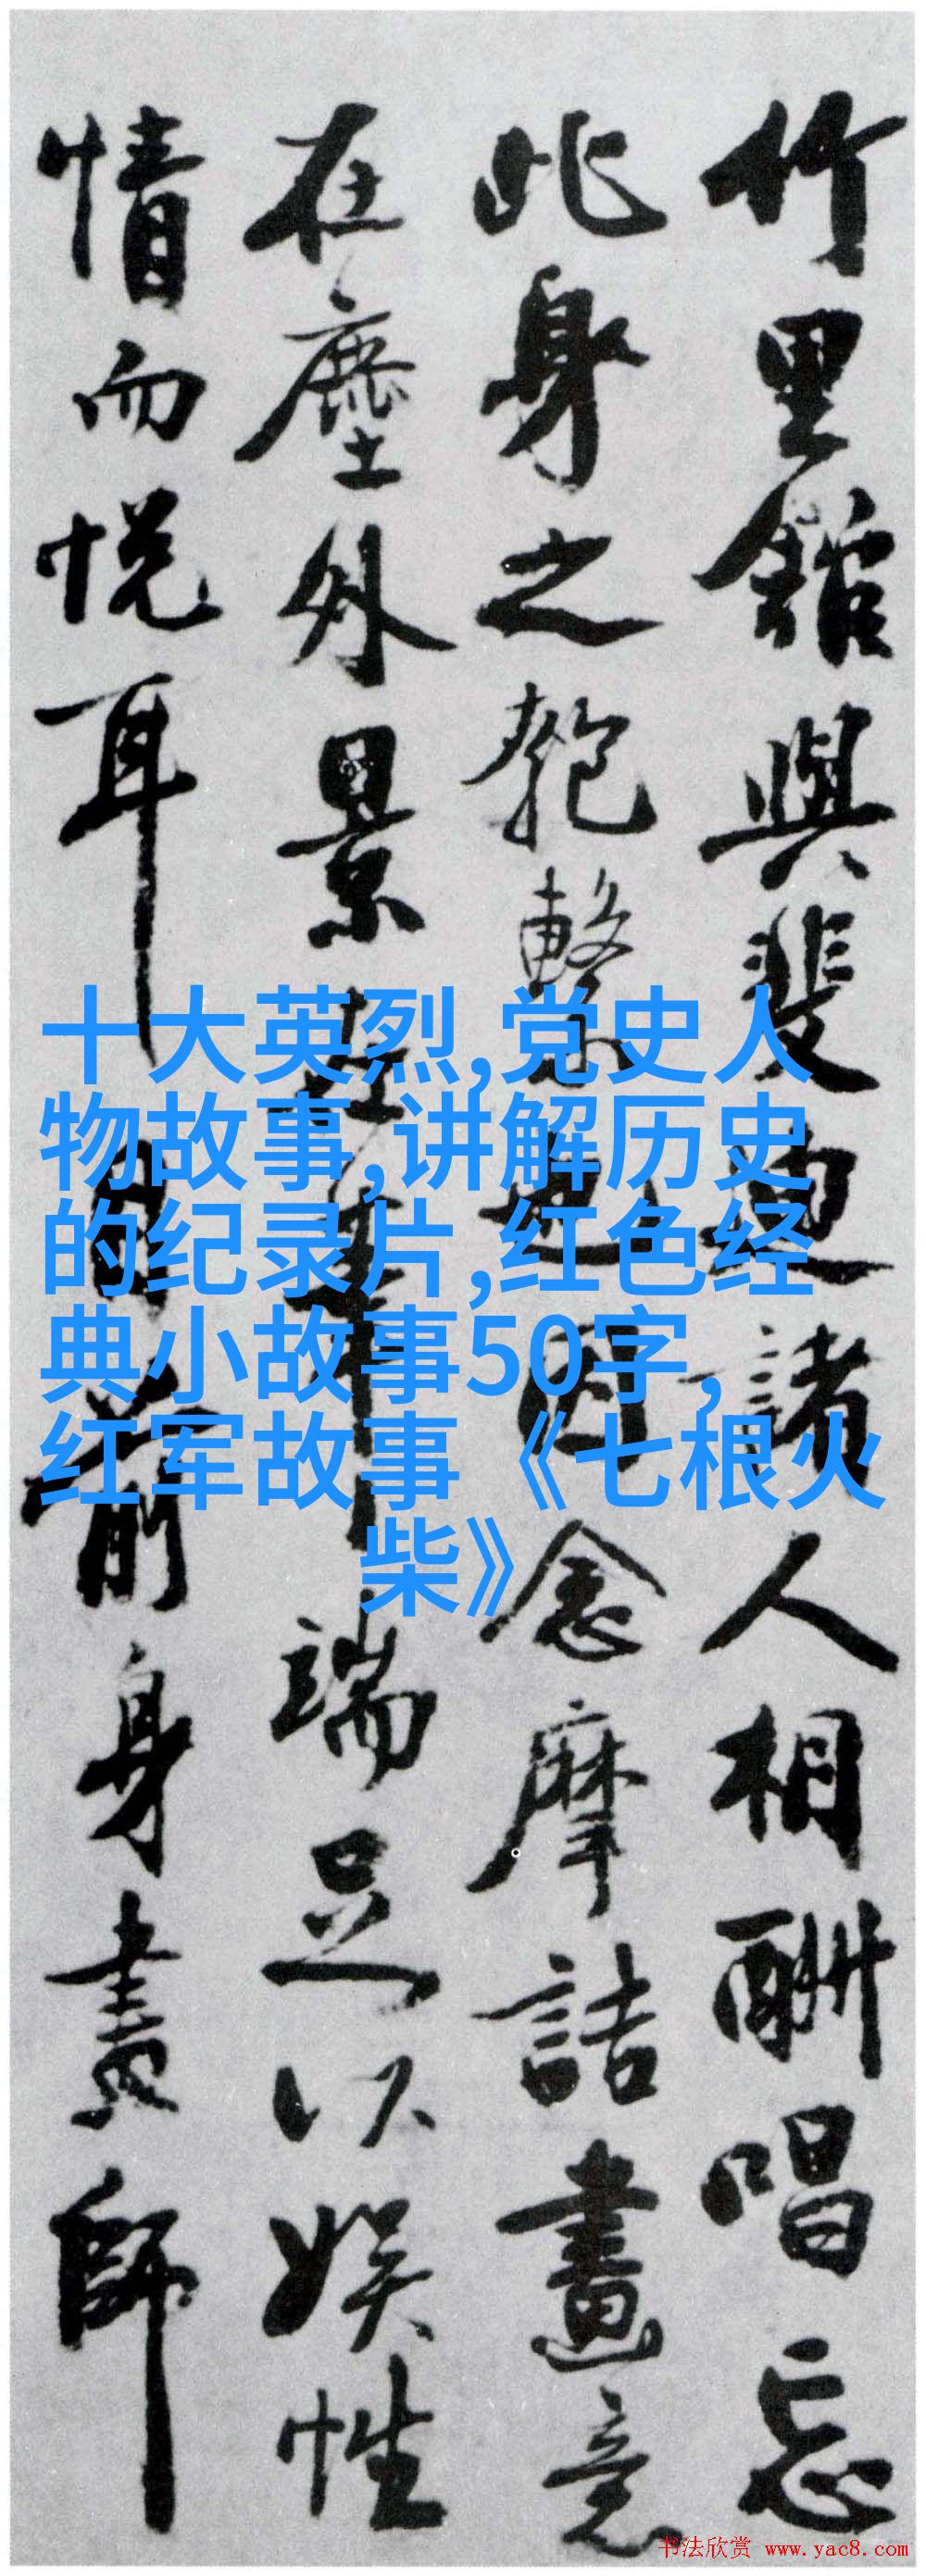 竹里館與斐迪諸人相酬唱忘
此身之匏繫也因念摩詰畫意
在塵外景在筆端足以娛性
情而悅耳目前身畫師
十大英烈,党史人
物故事,讲解历史
的纪录片,红色经
典小故事50字,
红军故事《七根火
柴》
书法欣赏 www.yac8.com